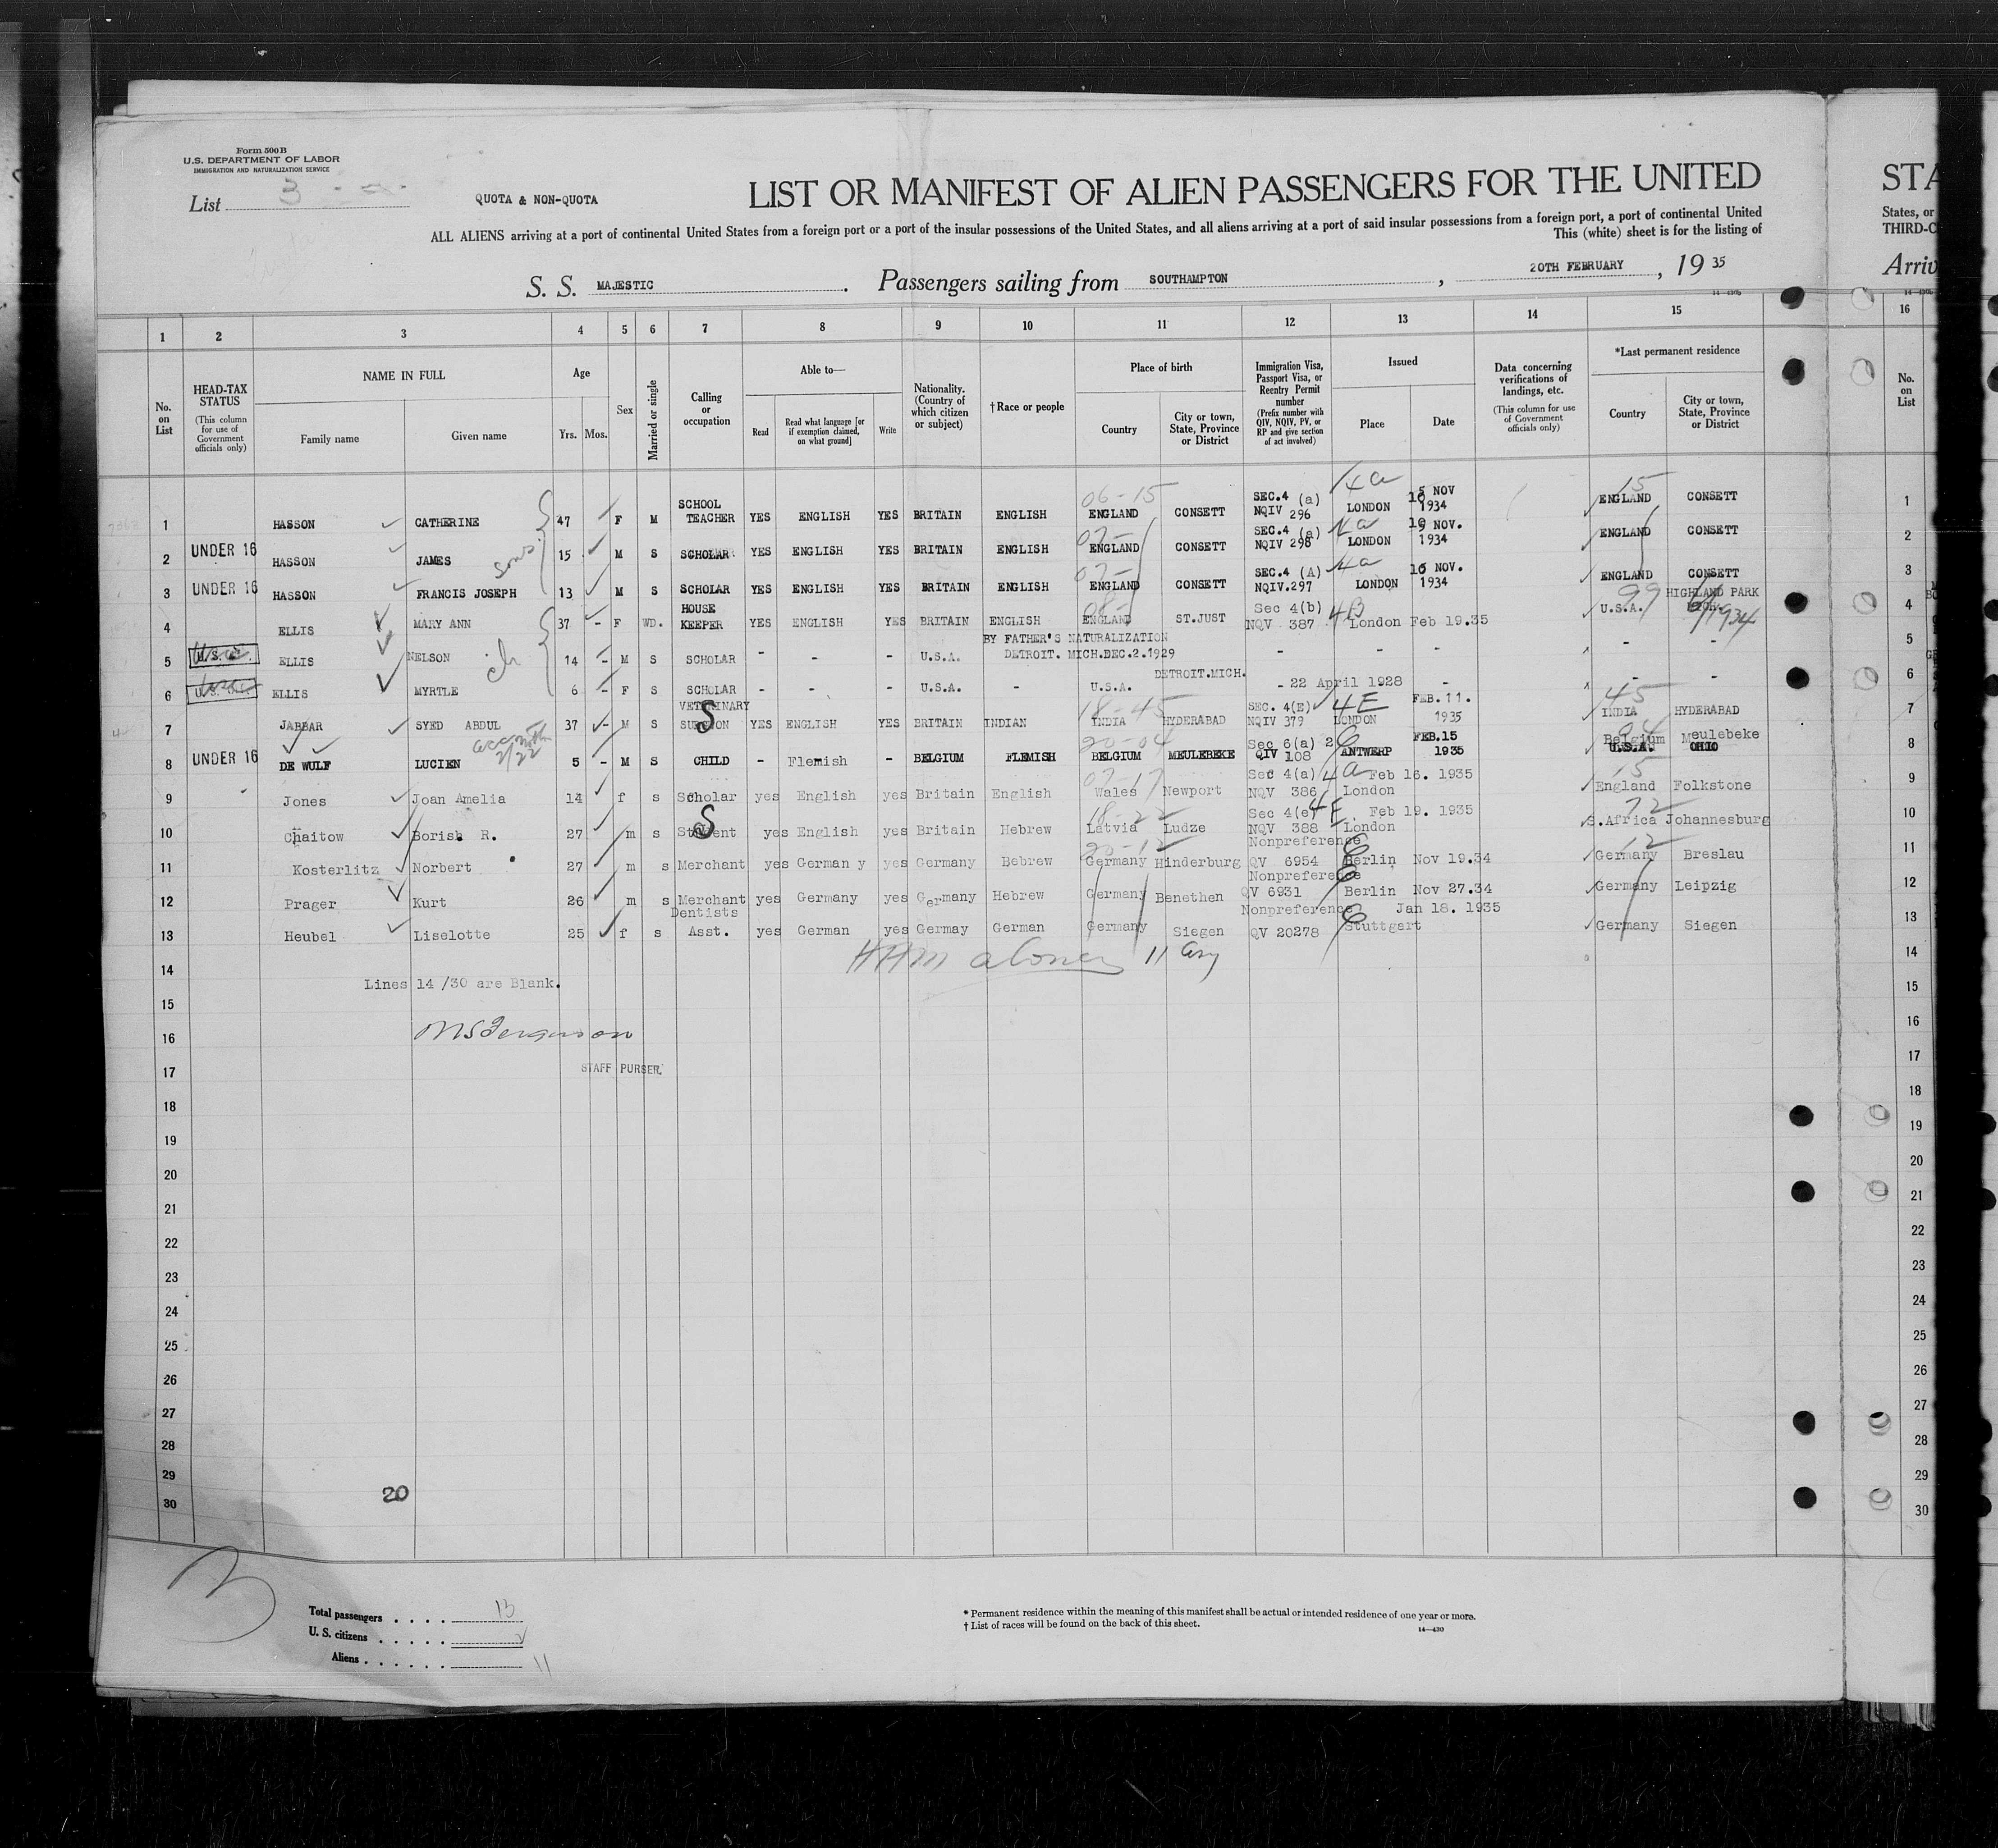 Form 500 B
U.S. DEPARTMENT OF LABOR
IMMIGRATION AND NATURALIZATION SERVICE
List 3
QUOTA & NON-QUOTA
LIST OR MANIFEST OF ALIEN PASSENGERS FOR THE UNITED
STA
ALL ALIENS arriving at a port of continental United States from a foreign port or a port of the insular possessions of the United States, and all aliens arriving at a port of said insular possessions from a foreign port, a port of continental United
States, or
This (white) sheet is for the listing of
THIRD-C
S. S. MAJESTIC. Passengers sailing from SOUTHAMPTON, 20TH FEBRUARY, 19 35
Arriv
14—430b
1 2 3 4 5 6 7 8 9 10 11 12 13 14 15 16
No. on List
HEAD-TAX STATUS
(This column for use of Government officials only)
NAME IN FULL
Family name
Given name
Age
Yrs. Mos.
Sex
Married or single
Calling or occupation
Able to—
Read
Read what language [or if exemption claimed, on what ground]
Write
Nationality. (Country of which citizen or subject)
† Race or people
Place of birth
Country
City or town, State, Province or District
Immigration Visa, Passport Visa, or Reentry Permit number
(Prefix number with QIV, NQIV, PV, or RP and give section of act involved)
Issued
Place
Date
Data concerning verifications of landings, etc.
(This column for use of Government officials only)
*Last permanent residence
Country
City or town, State, Province or District
No. on List
1 HASSON CATHERINE 47 F M SCHOOL TEACHER YES ENGLISH YES BRITAIN ENGLISH 06-15 ENGLAND CONSETT SEC.4 (a) NQIV 296 4a LONDON NOV 1934 15 ENGLAND CONSETT 1
2 UNDER 16 HASSON JAMES sons 15 M S SCHOLAR YES ENGLISH YES BRITAIN ENGLISH 07- ENGLAND CONSETT SEC.4 (a) NQIV 298 4a LONDON NOV. 1934 ENGLAND CONSETT 2
3 UNDER 16 HASSON FRANCIS JOSEPH 13 M S SCHOLAR YES ENGLISH YES BRITAIN ENGLISH 07- ENGLAND CONSETT SEC.4 (A) NQIV.297 4a LONDON NOV. 1934 ENGLAND CONSETT 3
4 ELLIS MARY ANN 37 - F WD. HOUSE KEEPER YES ENGLISH YES BRITAIN ENGLISH 08- ENGLAND ST.JUST Sec 4(b) NQV 387 4B London Feb 19.35 U.S.A. 99 HIGHLAND PARK 1934 4
BY FATHER'S NATURALIZATION
5 U.S.C. ELLIS NELSON ch 14 - M S SCHOLAR - - - U.S.A. DETROIT. MICH.DEC.2.1929 - - - - - 5
6 ELLIS MYRTLE 6 - F S SCHOLAR - - - U.S.A. - U.S.A. DETROIT.MICH. - 22 April 1928 - - - 6
7 JABBAR SYED ABDUL 37 - M S VETERINARY SURGEON S YES ENGLISH YES BRITAIN INDIAN 18-45 INDIA HYDERABAD SEC. 4(E) NQIV 379 4E LONDON FEB.11. 1935 45 INDIA HYDERABAD 7
8 UNDER 16 DE WULF LUCIEN 2/22 5 - M S CHILD - Flemish - BELGIUM FLEMISH 20-04 BELGIUM MEULEBEKE Sec 6(a) 2 QIV 108 ANTWERP FEB.15 1935 04 Belgium Meulebeke U.S.A. OHIO 8
9 Jones Joan Amelia 14 f s Scholar yes English yes Britain English 07-17 Wales Newport Sec 4(a) NQV 386 4a London Feb 16. 1935 15 England Folkstone 9
10 Chaitow Boris R. 27 m s Student S yes English yes Britain Hebrew 18-22 Latvia Ludze Sec 4(e) NQV 388 4E London Feb 19. 1935 72 S.Africa Johannesburg 10
11 Kosterlitz Norbert 27 m s Merchant yes German y yes Germany Bebrew 20-12 Germany Hinderburg Nonpreference QV 6954 Berlin Nov 19.34 12 Germany Breslau 11
12 Prager Kurt 26 m s Merchant yes Germany yes Germany Hebrew Germany Benethen Nonpreference QV 6931 Berlin Nov 27.34 Germany Leipzig 12
13 Heubel Liselotte 25 f s Dentists Asst. yes German yes Germay German Germany Siegen Nonpreference QV 20278 Stuttgart Jan 18. 1935 Germany Siegen 13
14 14
Lines 14 /30 are Blank.
15 15
16 16
STAFF PURSER.
17 17
18 18
19 19
20 20
21 21
22 22
23 23
24 24
25 25
26 26
27 27
28 28
29 29
20
30 30
Total passengers 13
U. S. citizens
Aliens 11
* Permanent residence within the meaning of this manifest shall be actual or intended residence of one year or more.
† List of races will be found on the back of this sheet.
14—430